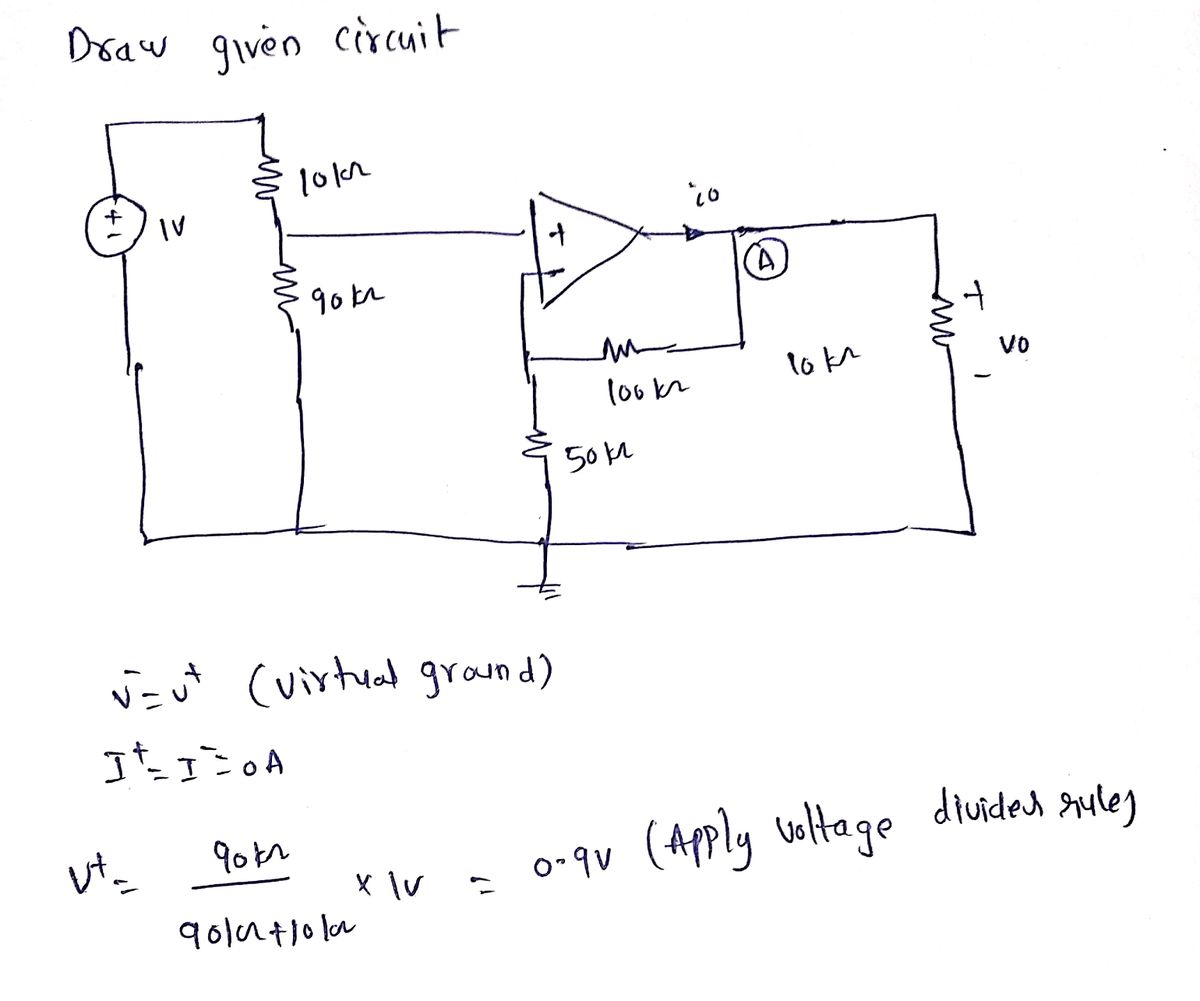 Draw given circuit
10kΩ
+
-
1V
90kΩ
+
-
i0
A
100kΩ
50kΩ
10kΩ
+
V0
-
V⁻=V⁺ (virtual ground)
I⁺=I⁻=0A
V⁺= 90kΩ / 90kΩ+10kΩ × 1V = 0.9V (Apply voltage divider rule)